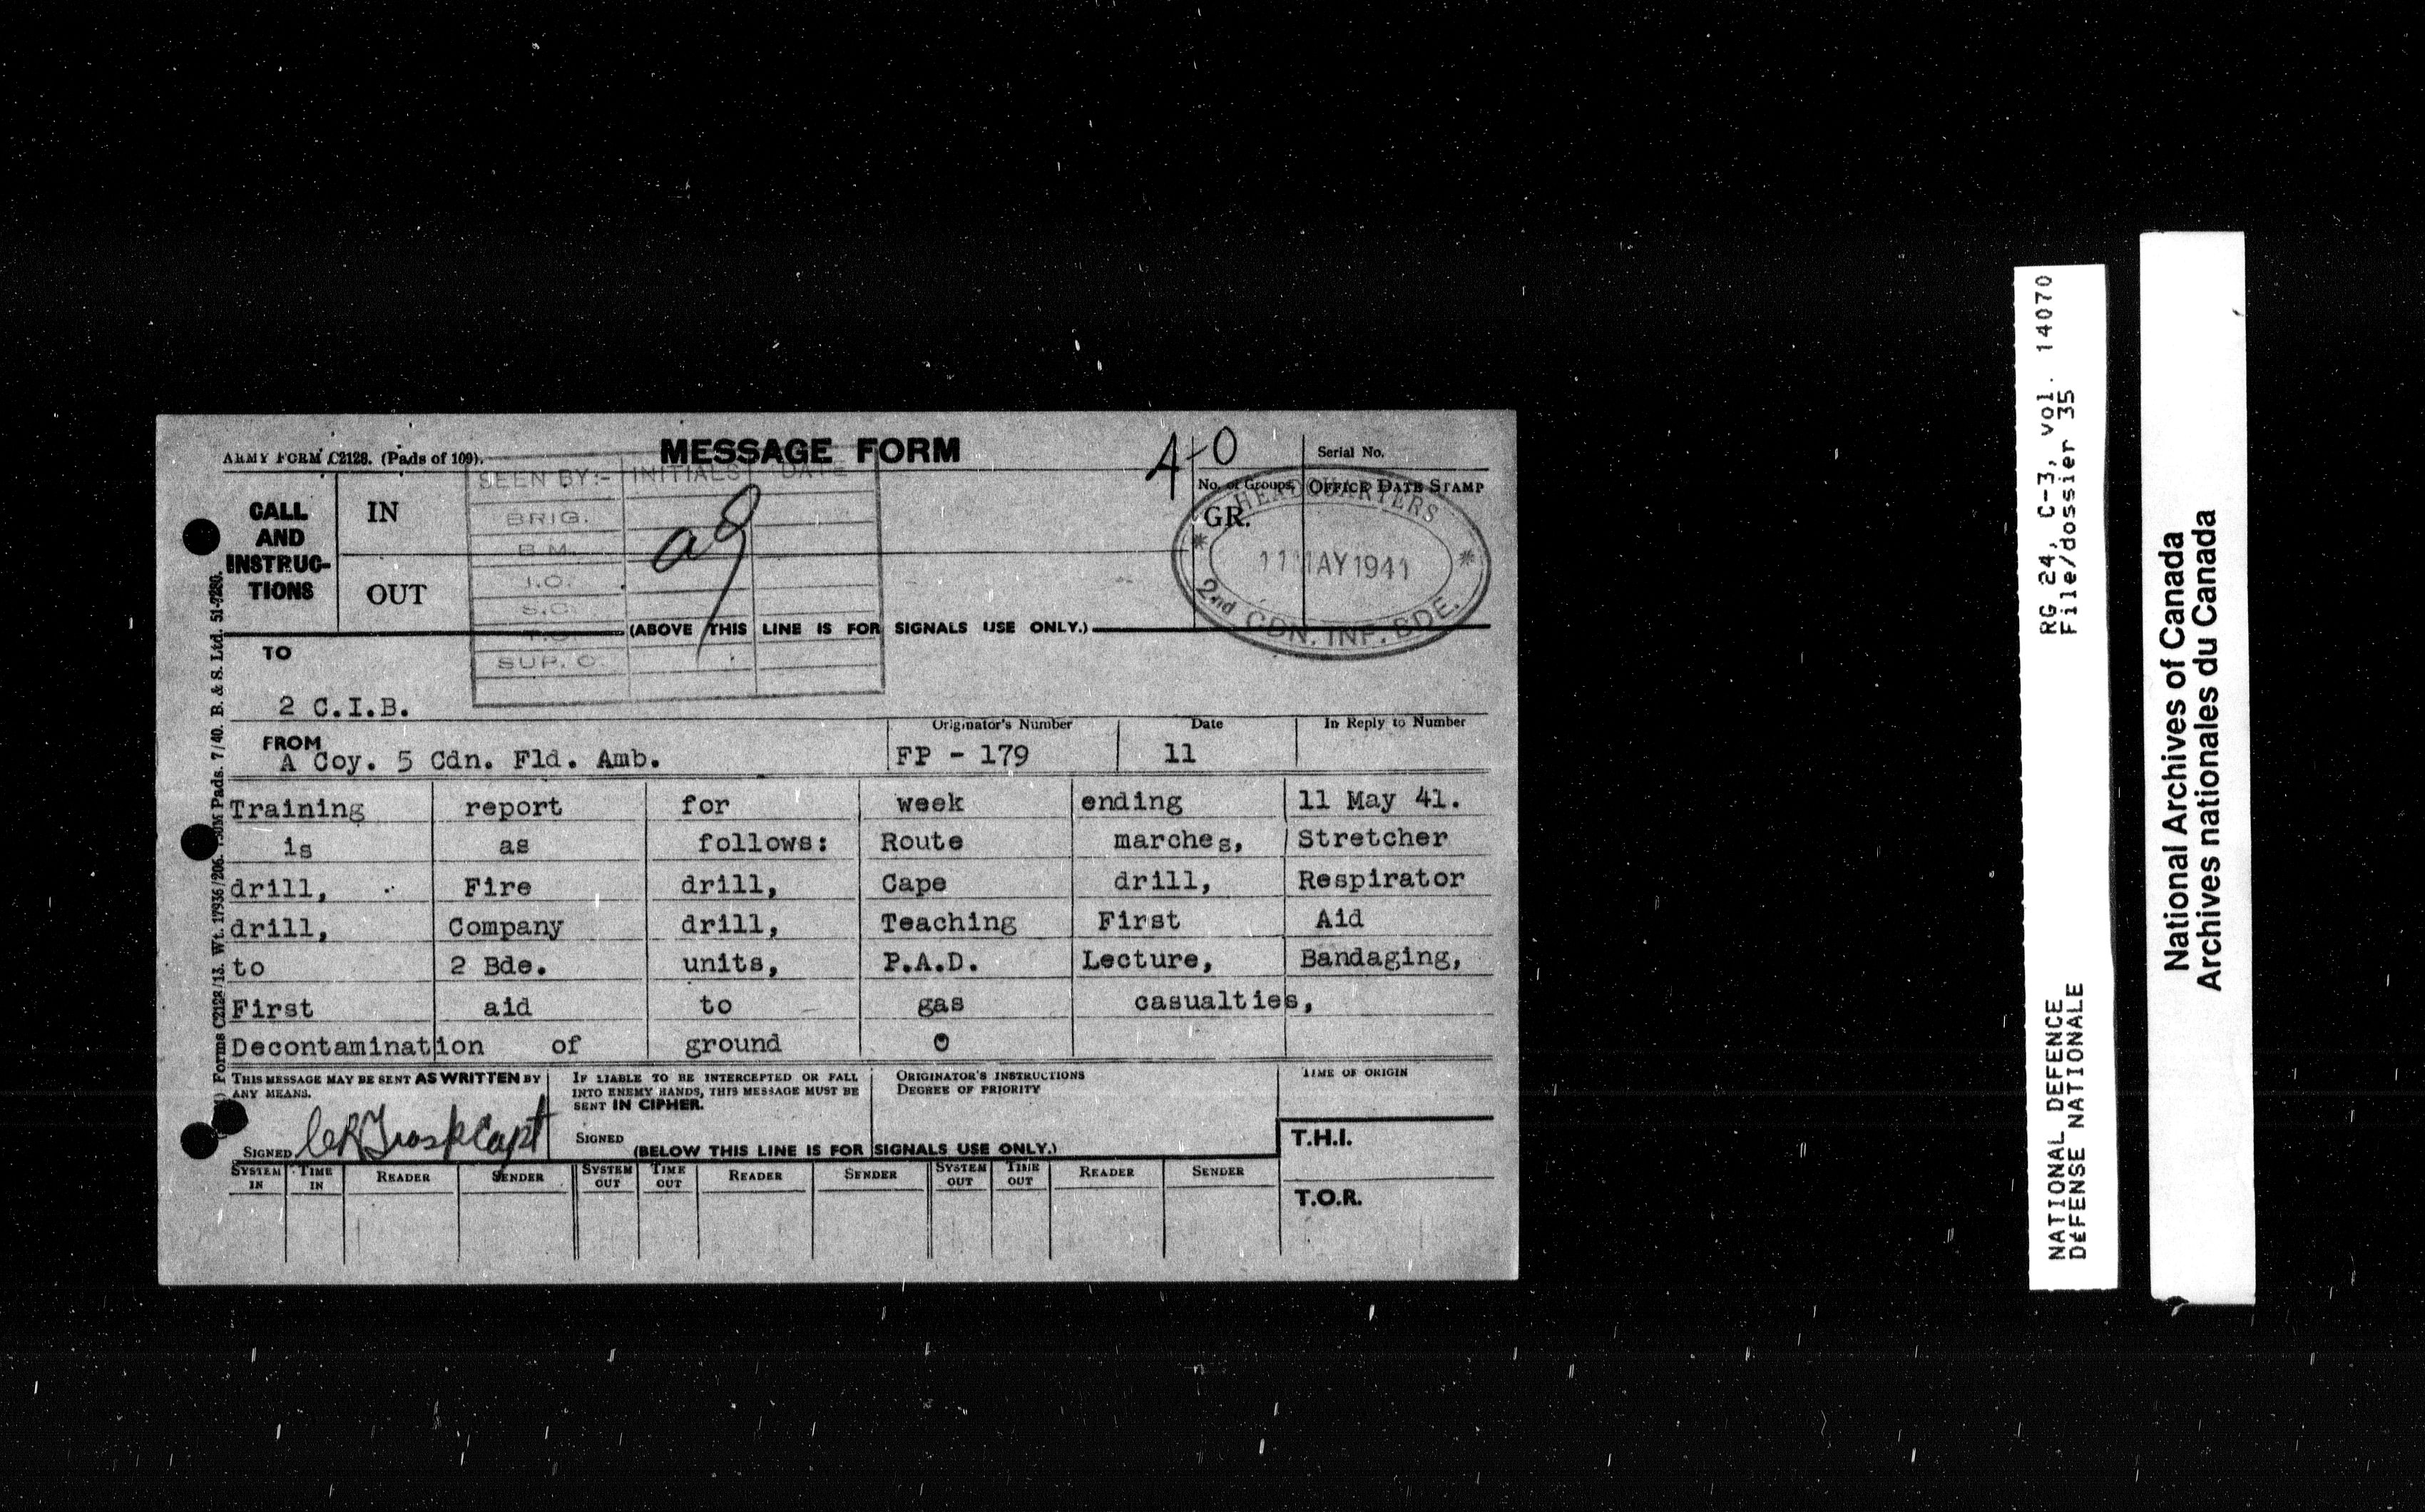 ARMY FORM C2128. (Pads of 100).
MESSAGE FORM
A-0
Serial No.
CALL AND INSTRUC-TIONS
IN
OUT
SEEN BY:- INITIALS DATE
BRIG.
B.M.
I.O.
S.C.
T.O.
SUP. O.
No. of Groups
GR.
OFFICE DATE STAMP
HEADQUARTERS
11 MAY 1941
2nd CDN. INF. BDE.
(ABOVE THIS LINE IS FOR SIGNALS USE ONLY.)
TO
2 C.I.B.
FROM
A Coy. 5 Cdn. Fld. Amb.
Originator's Number
FP - 179
Date
11
In Reply to Number
Training report for week ending 11 May 41.
is as follows: Route marches, Stretcher
drill, Fire drill, Cape drill, Respirator
drill, Company drill, Teaching First Aid
to 2 Bde. units, P.A.D. Lecture, Bandaging,
First aid to gas casualties,
Decontamination of ground O
THIS MESSAGE MAY BE SENT AS WRITTEN BY
ANY MEANS.
SIGNED Capt
IF LIABLE TO BE INTERCEPTED OR FALL
INTO ENEMY HANDS, THIS MESSAGE MUST BE
SENT IN CIPHER.
SIGNED
ORIGINATOR'S INSTRUCTIONS
DEGREE OF PRIORITY
TIME OF ORIGIN
(BELOW THIS LINE IS FOR SIGNALS USE ONLY.)
T.H.I.
T.O.R.
SYSTEM IN TIME IN READER SENDER SYSTEM OUT TIME OUT READER SENDER SYSTEM OUT TIME OUT READER SENDER
Forms C2128/13. Wt. 17936/206. Pads. 7/40. B. & S. Ltd. 51-7280.
NATIONAL DEFENCE RG 24, C-3, vol. 14070
DÉFENSE NATIONALE File/dossier 35
National Archives of Canada
Archives nationales du Canada